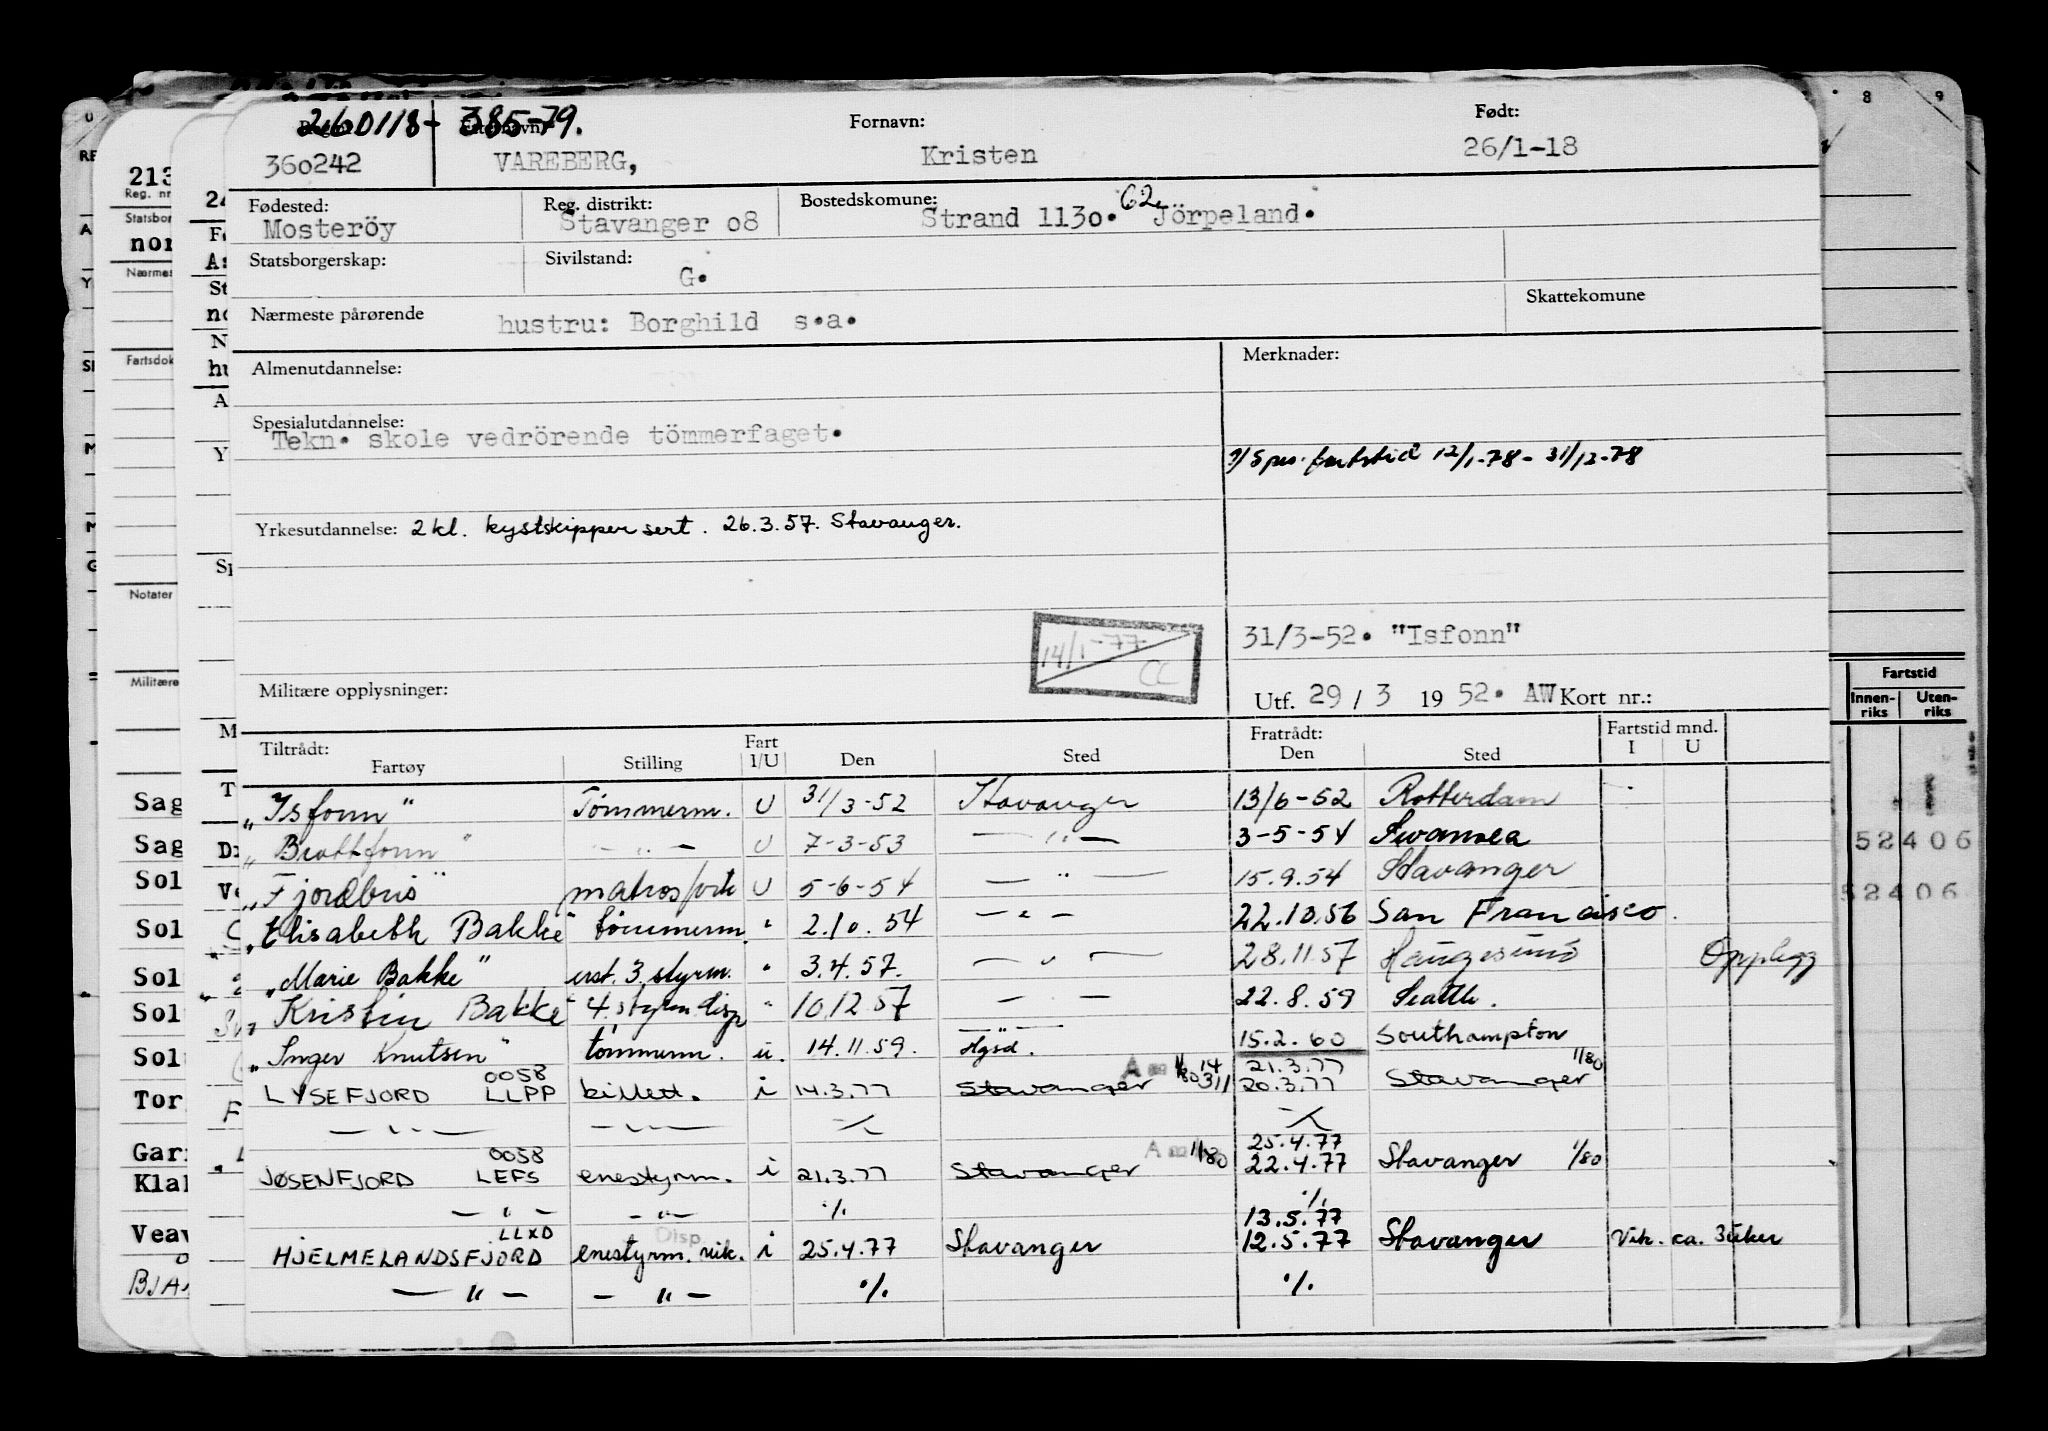 260118-385-79.
Fornavn: Født:
360242 VAREBERG, Kristen 26/1-18
Fødested: Reg. distrikt: Bostedskomune:
Mosteröy Stavanger o8 Strand 113o. 62 Jörpeland.
Statsborgerskap: Sivilstand: G.
Nærmeste pårørende hustru: Borghild s.a. Skattekomune
Almenutdannelse: Merknader:
Spesialutdannelse:
Tekn. skole vedrörende tömmerfaget.
Spes. fartstid 12/1-78 - 31/12-78
Yrkesutdannelse: 2 kl. kystskippersert. 26.3.57. Stavanger.
14/1-77 CC
31/3-52. "Isfonn"
Militære opplysninger:
Utf. 29 / 3 19 52. AW Kort nr.:
Tiltrådt: Fart Fratrådt: Fartstid mnd.
Fartøy Stilling I/U Den Sted Den Sted I U
"Isfonn" Tømmerm. U 31/3-52 Stavanger 13/6-52 Rotterdam
"Brattfonn" — " — U 7-3-53 — " — 3-5-54 Swansea
"Fjordbris" matros U 5-6-54 — " — 15.9.54 Stavanger
"Elisabeth Bakke" tømmerm. " 2.10.54 — " — 22.10.56 San Francisco.
"Marie Bakke" 3. styrm. " 3.4.57. — " — 28.11.57 Haugesund Opplegg
"Kristin Bakke" 4. styrm. disp " 10.12.57 — " — 22.8.59 Seattle.
"Inger Knutsen" tømmerm. u. 14.11.59. Hgsd. 15.2.60 Southampton
0058 21.3.77 1/80
LYSEFJORD LLPP billett. i 14.3.77 Stavanger 20.3.77 Stavanger
— " — — " —
0058 25.4.77
JØSENFJORD LEFS enestyrm. i 21.3.77 Stavanger 1/80 22.4.77 Stavanger 1/80
— " — — " — ·/.  ·/.
LLXD Disp. 13.5.77
HJELMELANDSFJORD enestyrm. vik. i 25.4.77 Stavanger 12.5.77 Stavanger Vik. ca. 3 uker
— " — — " — ·/. ·/.
213
Reg. nr
nor
Notater
Militære
Sag
Sag
Sol
Sol
Sol
Sol
Sol
Tor
Gar
Kla
Vea
8 9
Fartstid
Innen-riks Uten-riks
52406
52406